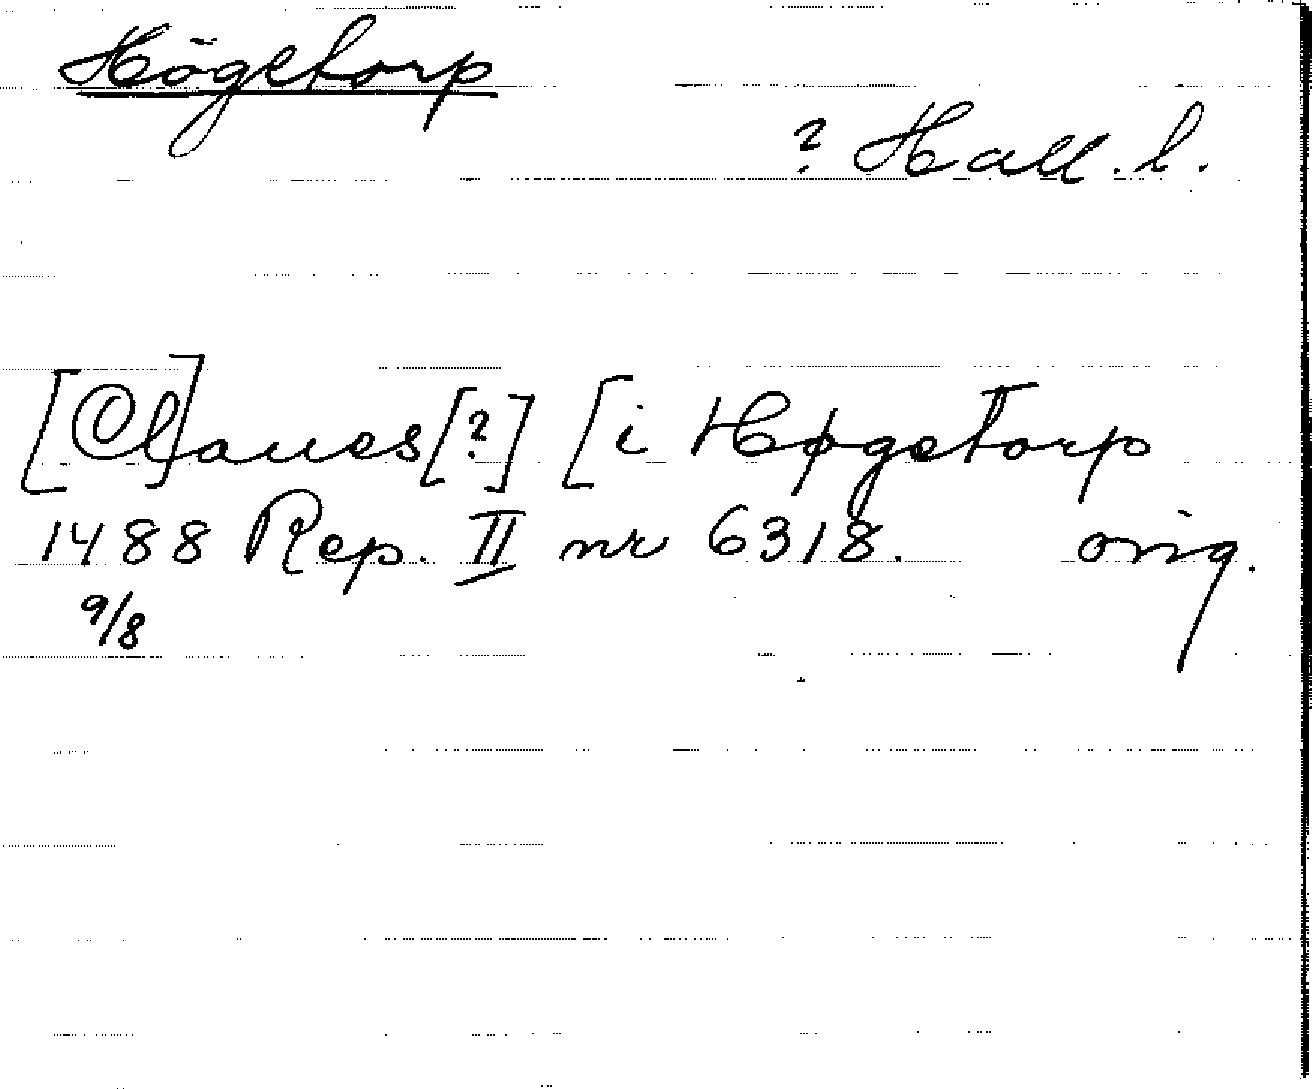 Högetorp
? Hall. l.
[Cl]aues[?] [i Høgetorp
1488 Rep. II nr 6318. orig.
9/8